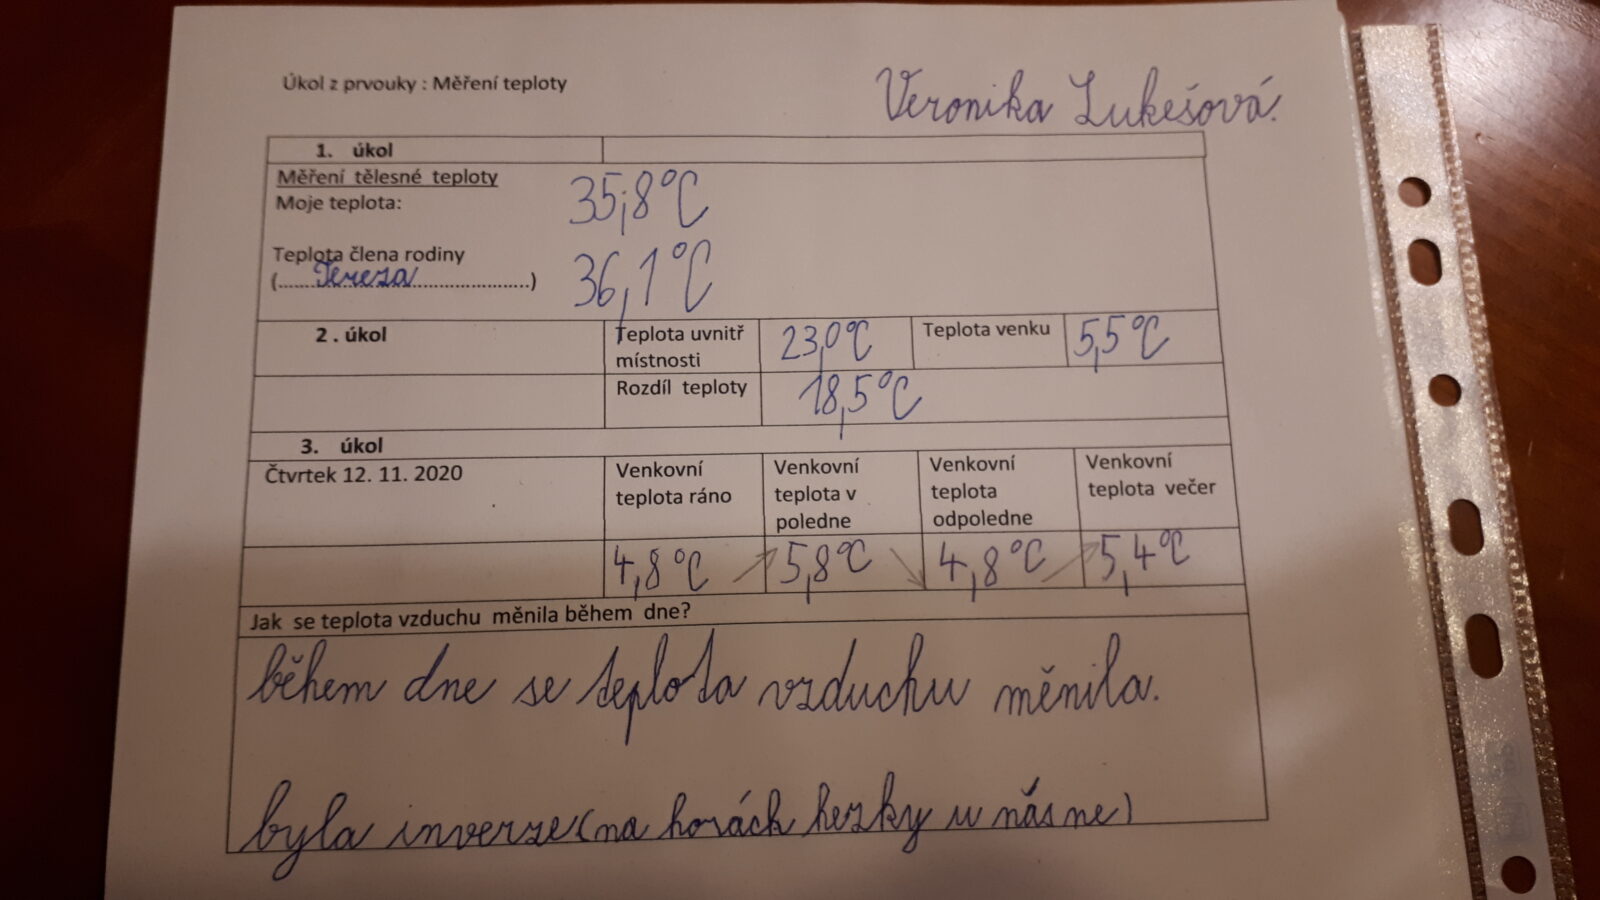 Úkol z prvouky : Měření teploty
Veronika Lukešová.
1. úkol
Měření tělesné teploty
Moje teplota:
35,8°C
Teplota člena rodiny
(.......Tereza.....................) 36,1°C
2 . úkol
Teplota uvnitř místnosti
23,0°C
Teplota venku
5,5°C
Rozdíl teploty
18,5°C
3. úkol
Čtvrtek 12. 11. 2020
Venkovní
teplota ráno
Venkovní
teplota v
poledne
Venkovní
teplota
odpoledne
Venkovní
teplota večer
4,8°C
5,8°C
4,8°C
5,4°C
Jak se teplota vzduchu měnila během dne?
během dne se teplota vzduchu měnila.
byla inverze (na horách hezky u nás ne)